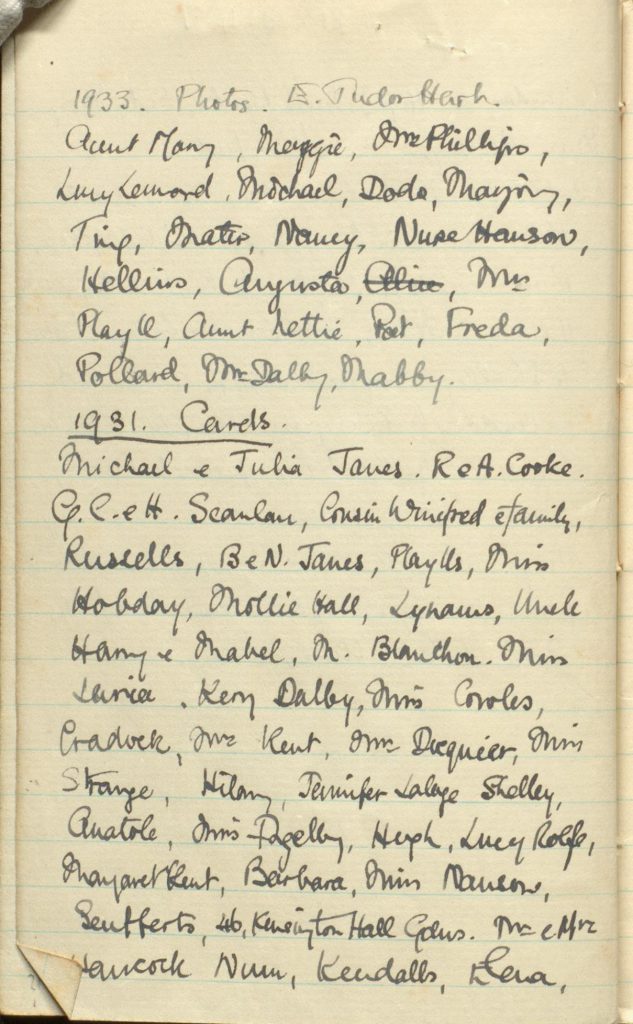 1933. Photos. E. Tudor Hart.
Aunt Mary, Maggie, Mrs Phillips,
Lucy Leonard, Michael, Dodo, Marjory,
Ting, Mater, Nancy, Nurse Hanson,
Hellins, Augusta, Alice, Mrs
Playll, Aunt Nettie, Pat, Freda,
Pollard, Mrs Dalby, Mabby.
1931. Cards.
Michael e Julia Janes. R e A. Cooke.
G. C. e H. Scanlan, Cousin Winifred e family,
Russells, B e N. Janes, Playlls, Miss
Hobday, Mollie Hall, Lynams, Uncle
Harry e Mabel, M. Blanthon. Miss
Kery Dalby, Miss Cowles,
Cradock, Mrs Kent, Mrs Duquier, Miss
Strange, Hilary, Jennifer Lalage Shelley,
Anatole, Miss Hugh, Lucy Rolfe,
Margaret Kent, Barbara, Miss Nanson,
Seufferts, 46, Kensington Hall Gdns. Mr e Mrs
Hancock Nunn, Kendalls, Lena,